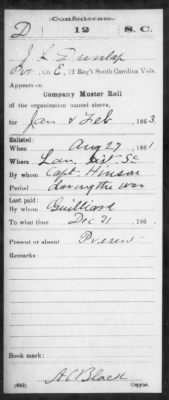 Confederate.
D 12 S.C.
J L Dunlop
Pvt, Co. E, 12 Reg't South Carolina Vols.
Appears on
Company Muster Roll
of the organization named above,
for Jan & Feb, 1863.
Enlisted:
When Aug 27, 1861.
Where Lan. Dist. Sc
By whom Capt. Hinson
Period during the war
Last paid:
By whom Guilliard
To what time Dec 31, 186
Present or absent Present
Remarks:
Book mark:
(642) A C Black
Copyist.